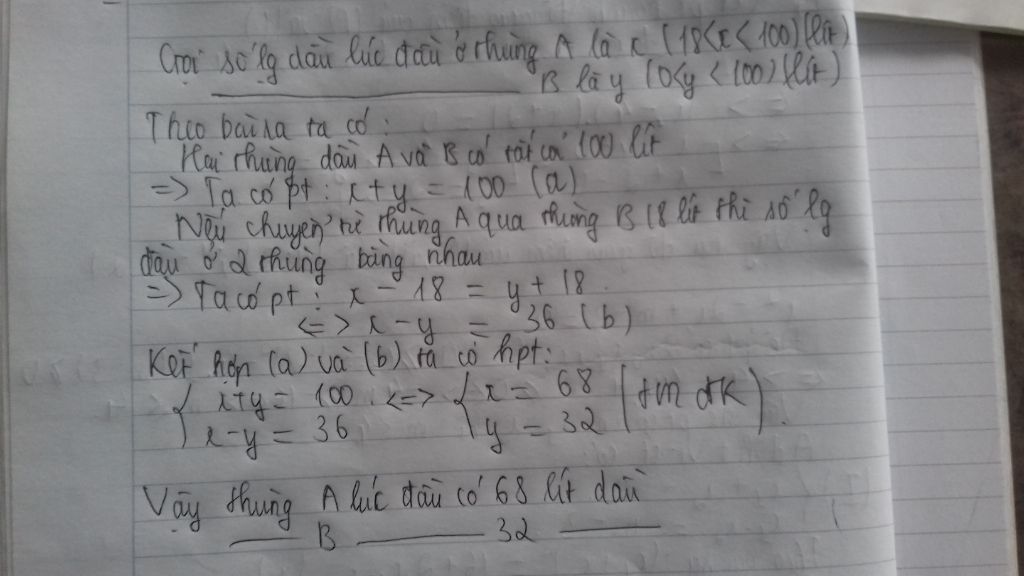 Gọi số lg dầu lúc đầu ở thùng A là x (18<x<100)(lít)
B là y (0<y<100)(lít)
Theo bài ra ta có:
Hai thùng dầu A và B có tất cả 100 lít
=> Ta có pt: x+y = 100 (a)
Nếu chuyển từ thùng A qua thùng B 18 lít thì số lg
dầu ở 2 thùng bằng nhau
=> Ta có pt: x - 18 = y + 18
<=> x - y = 36 (b)
Kết hợp (a) và (b) ta có hpt:
{ x+y = 100 <=> { x = 68 (tm đk).
{ x-y = 36 { y = 32
Vậy thùng A lúc đầu có 68 lít dầu
B 32